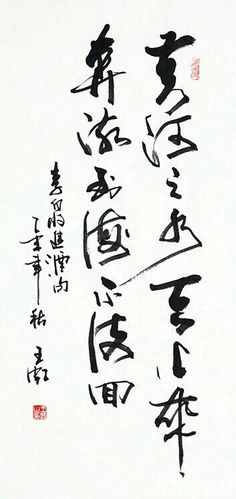 黄河之水天上来
奔流到海不復回
李白将進酒句
乙未年秋 王